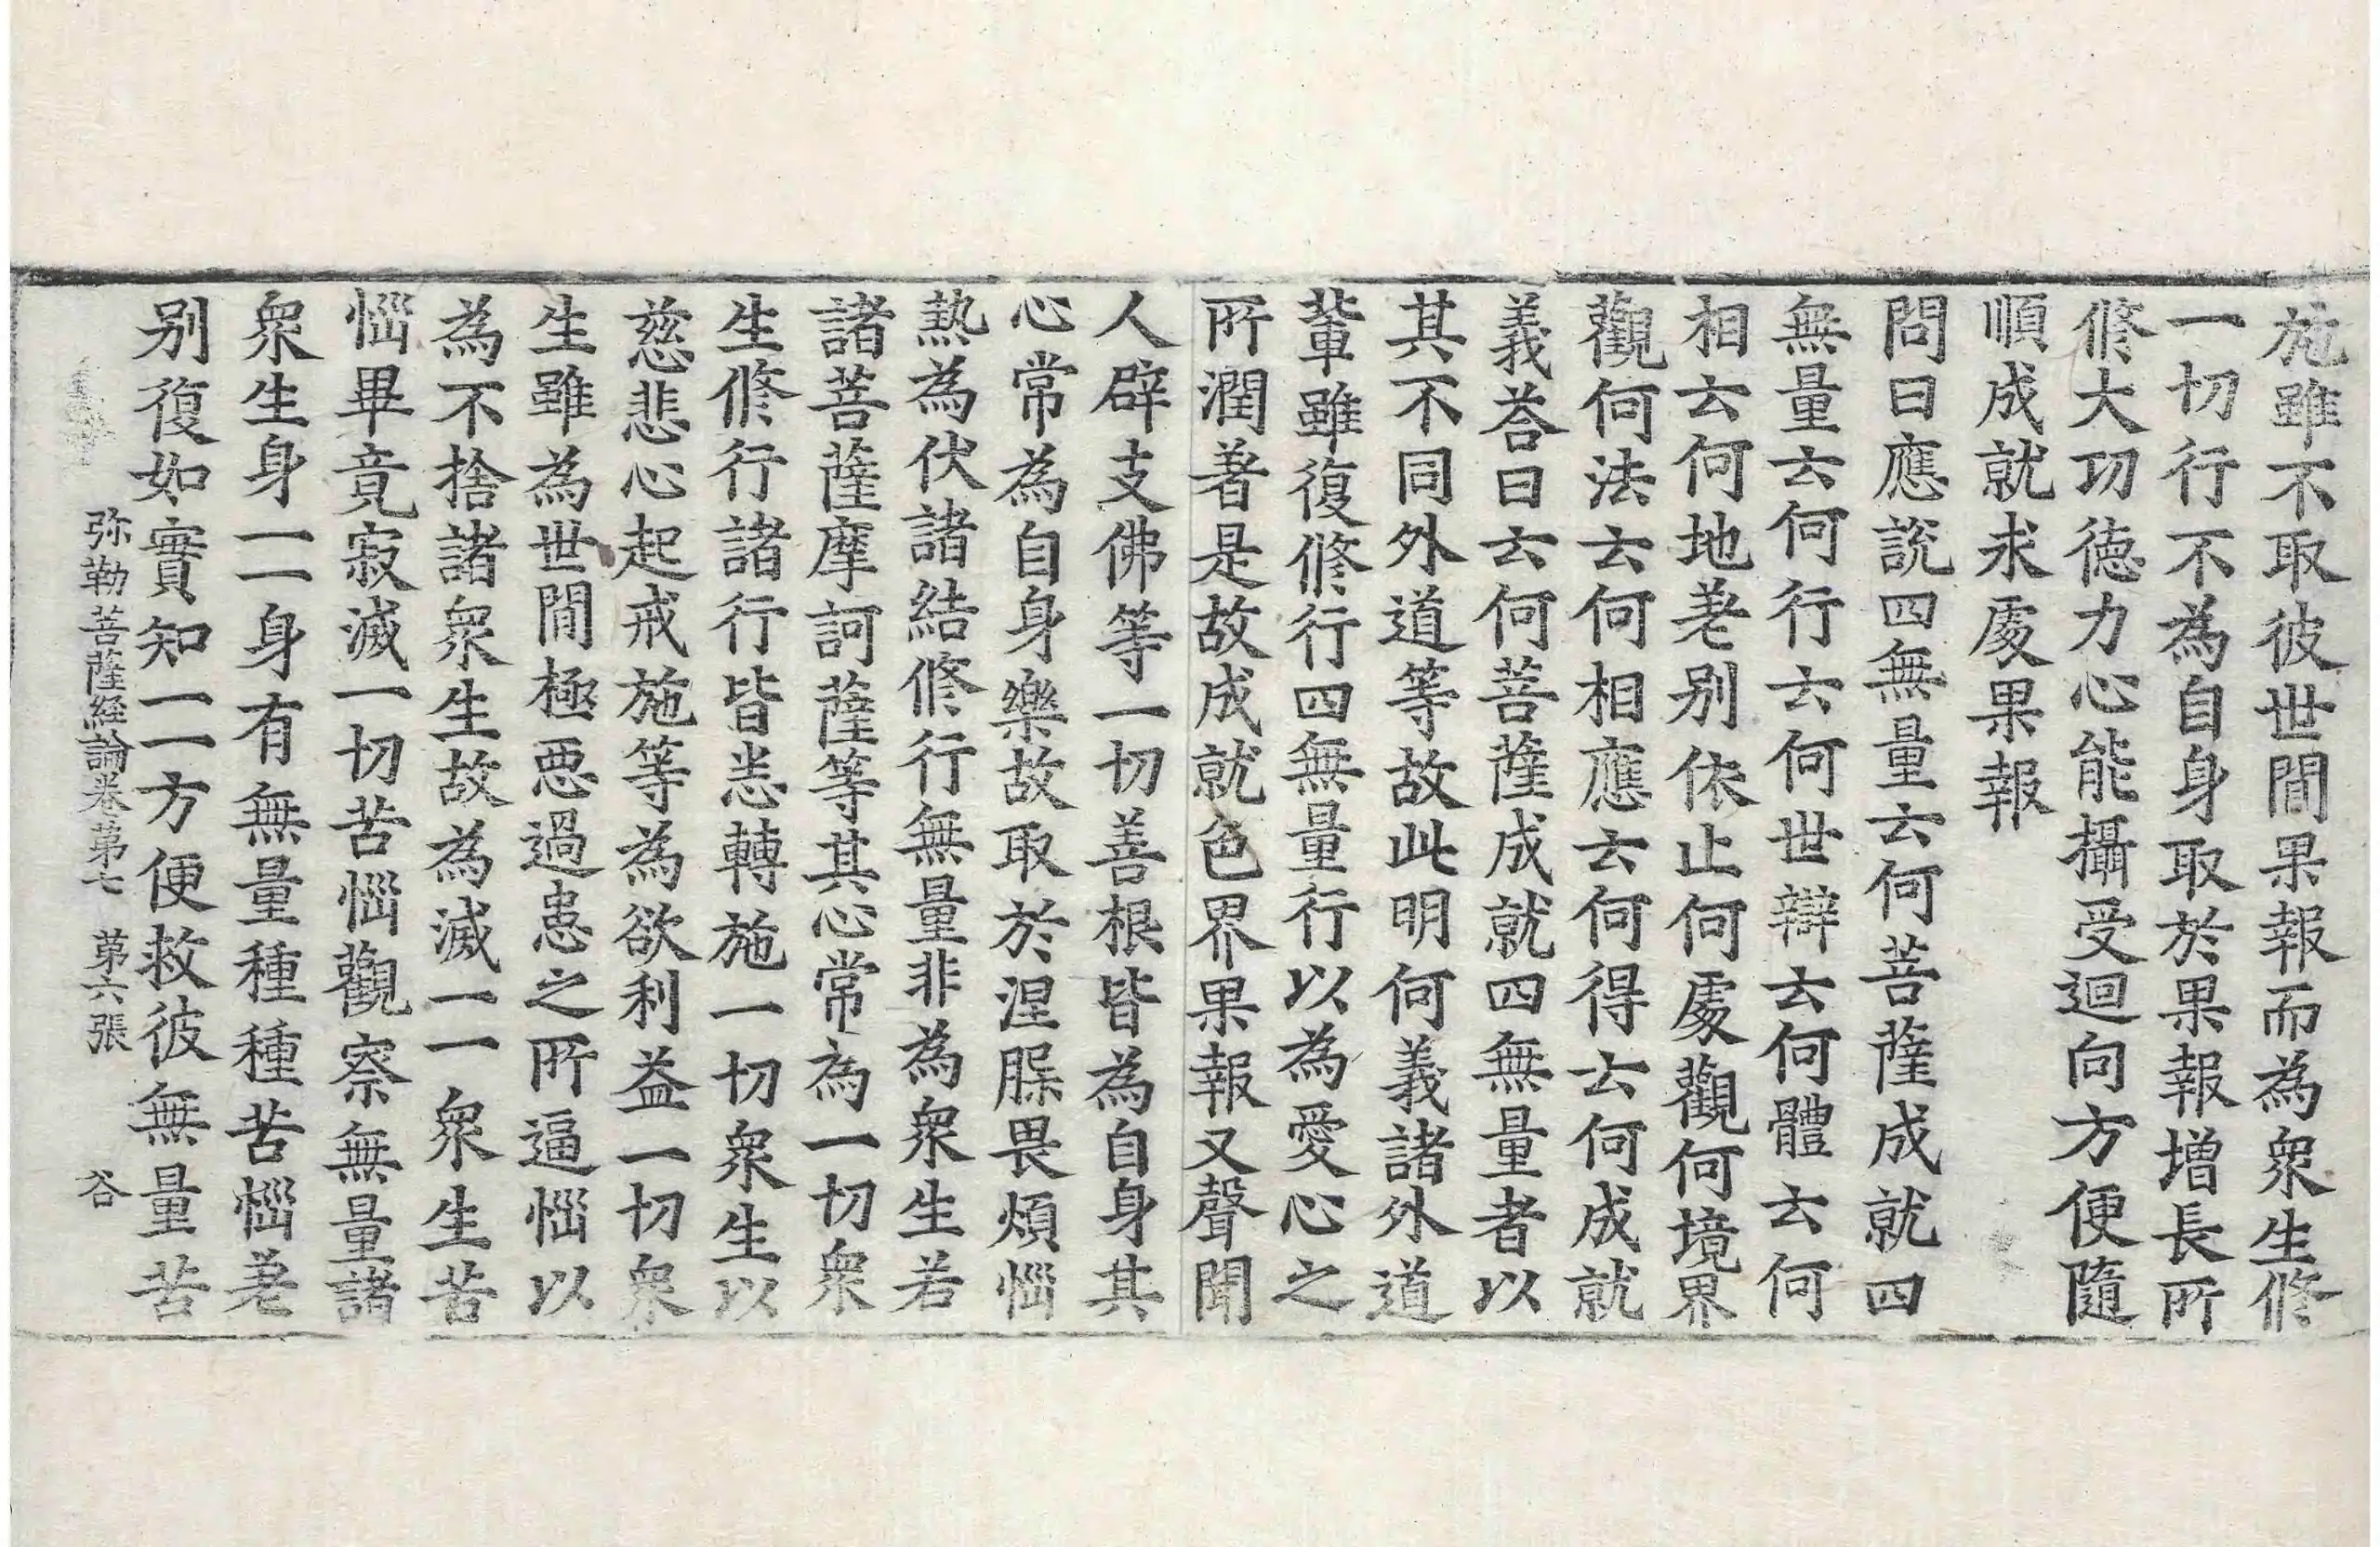 施雖不取彼世間果報而為衆生修
一切行不為自身取於果報增長所
修大功德力心能攝受迴向方便隨
順成就求處果報
問曰應說四無量云何菩薩成就四
無量云何行云何世辯云何體云何
相云何地差別依止何處觀何境界
觀何法云何相應云何得云何成就
義荅曰云何菩薩成就四無量者以
其不同外道等故此明何義諸外道
輩雖復修行四無量行以為愛心之
所潤著是故成就色界果報又聲聞
人辟支佛等一切善根皆為自身其
心常為自身樂故取於涅槃畏煩惱
熱為伏諸結修行無量非為衆生若
諸菩薩摩訶薩等其心常為一切衆
生修行諸行皆悉轉施一切衆生以
慈悲心起戒施等為欲利益一切衆
生雖為世間極惡過患之所逼惱以
為不捨諸衆生故為滅一一衆生苦
惱畢竟寂滅一切苦惱觀察無量諸
衆生身一一身有無量種種苦惱差
別復如實知一一方便救彼無量苦
弥勒菩薩經論卷第七 第六張 荅